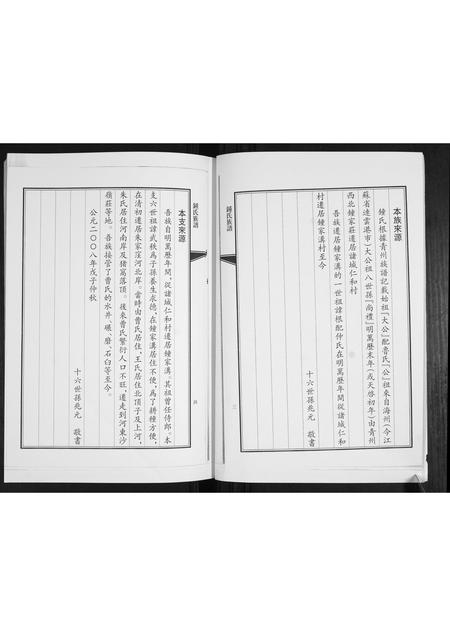 本族來源
鍾氏根據青州族譜記載始祖『大公』配魯氏『公』祖來自海州(今江
蘇省連雲港市)大公祖八世孫『尚禮』明萬歷末年(或天啓初年)由青州
西北鍾家莊遷居諸城仁和村
吾族遷居鍾家溝的一世祖諱根配仲氏在明萬歷年間從諸城仁和
村遷居鍾家溝村至今
十六世孫兆元 敬書
鍾氏族譜
三
鍾氏族譜
四
本支來源
吾族自明萬歷年間,從諸城仁和村遷居鍾家溝,其祖曾任侍郎。本
支六世祖諱武秩為子孫養生求德,在鍾家溝居住不便,為了耕種方便,
在清初遷居朱家窪河北岸,當時由曹氏居住,王氏居住北頂子及上河,
朱氏居住河南岸及猪窩落頂。後來曹氏繁衍人口不旺,遷走到河東沙
嶺莊等地。吾族接管了曹氏的水井、碾、磨、石臼等至今。
公元二〇〇八年戊子仲秋
十六世孫兆元 敬書